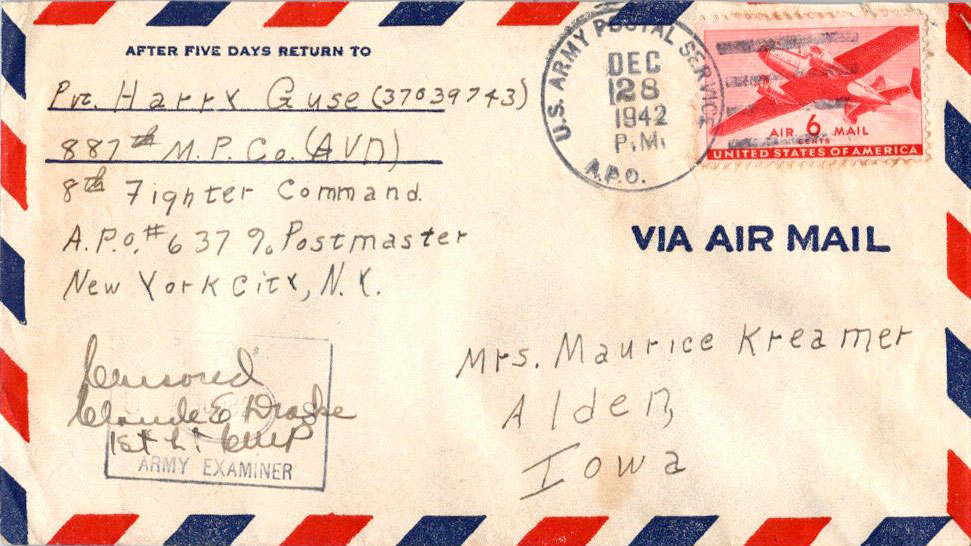 AFTER FIVE DAYS RETURN TO
Pvt. Harry Guse (37039743)
887th M.P. Co. (AVN)
8th Fighter Command.
A.P.O. #637 % Postmaster
New York City, N.Y.
U.S. ARMY POSTAL SERVICE
DEC
28
1942
P.M.
A.P.O.
AIR 6 MAIL
CENTS
UNITED STATES OF AMERICA
VIA AIR MAIL
Mrs. Maurice Kreamer
Alden,
Iowa
Censored
Claude E Drake
1st Lt CMP
ARMY EXAMINER